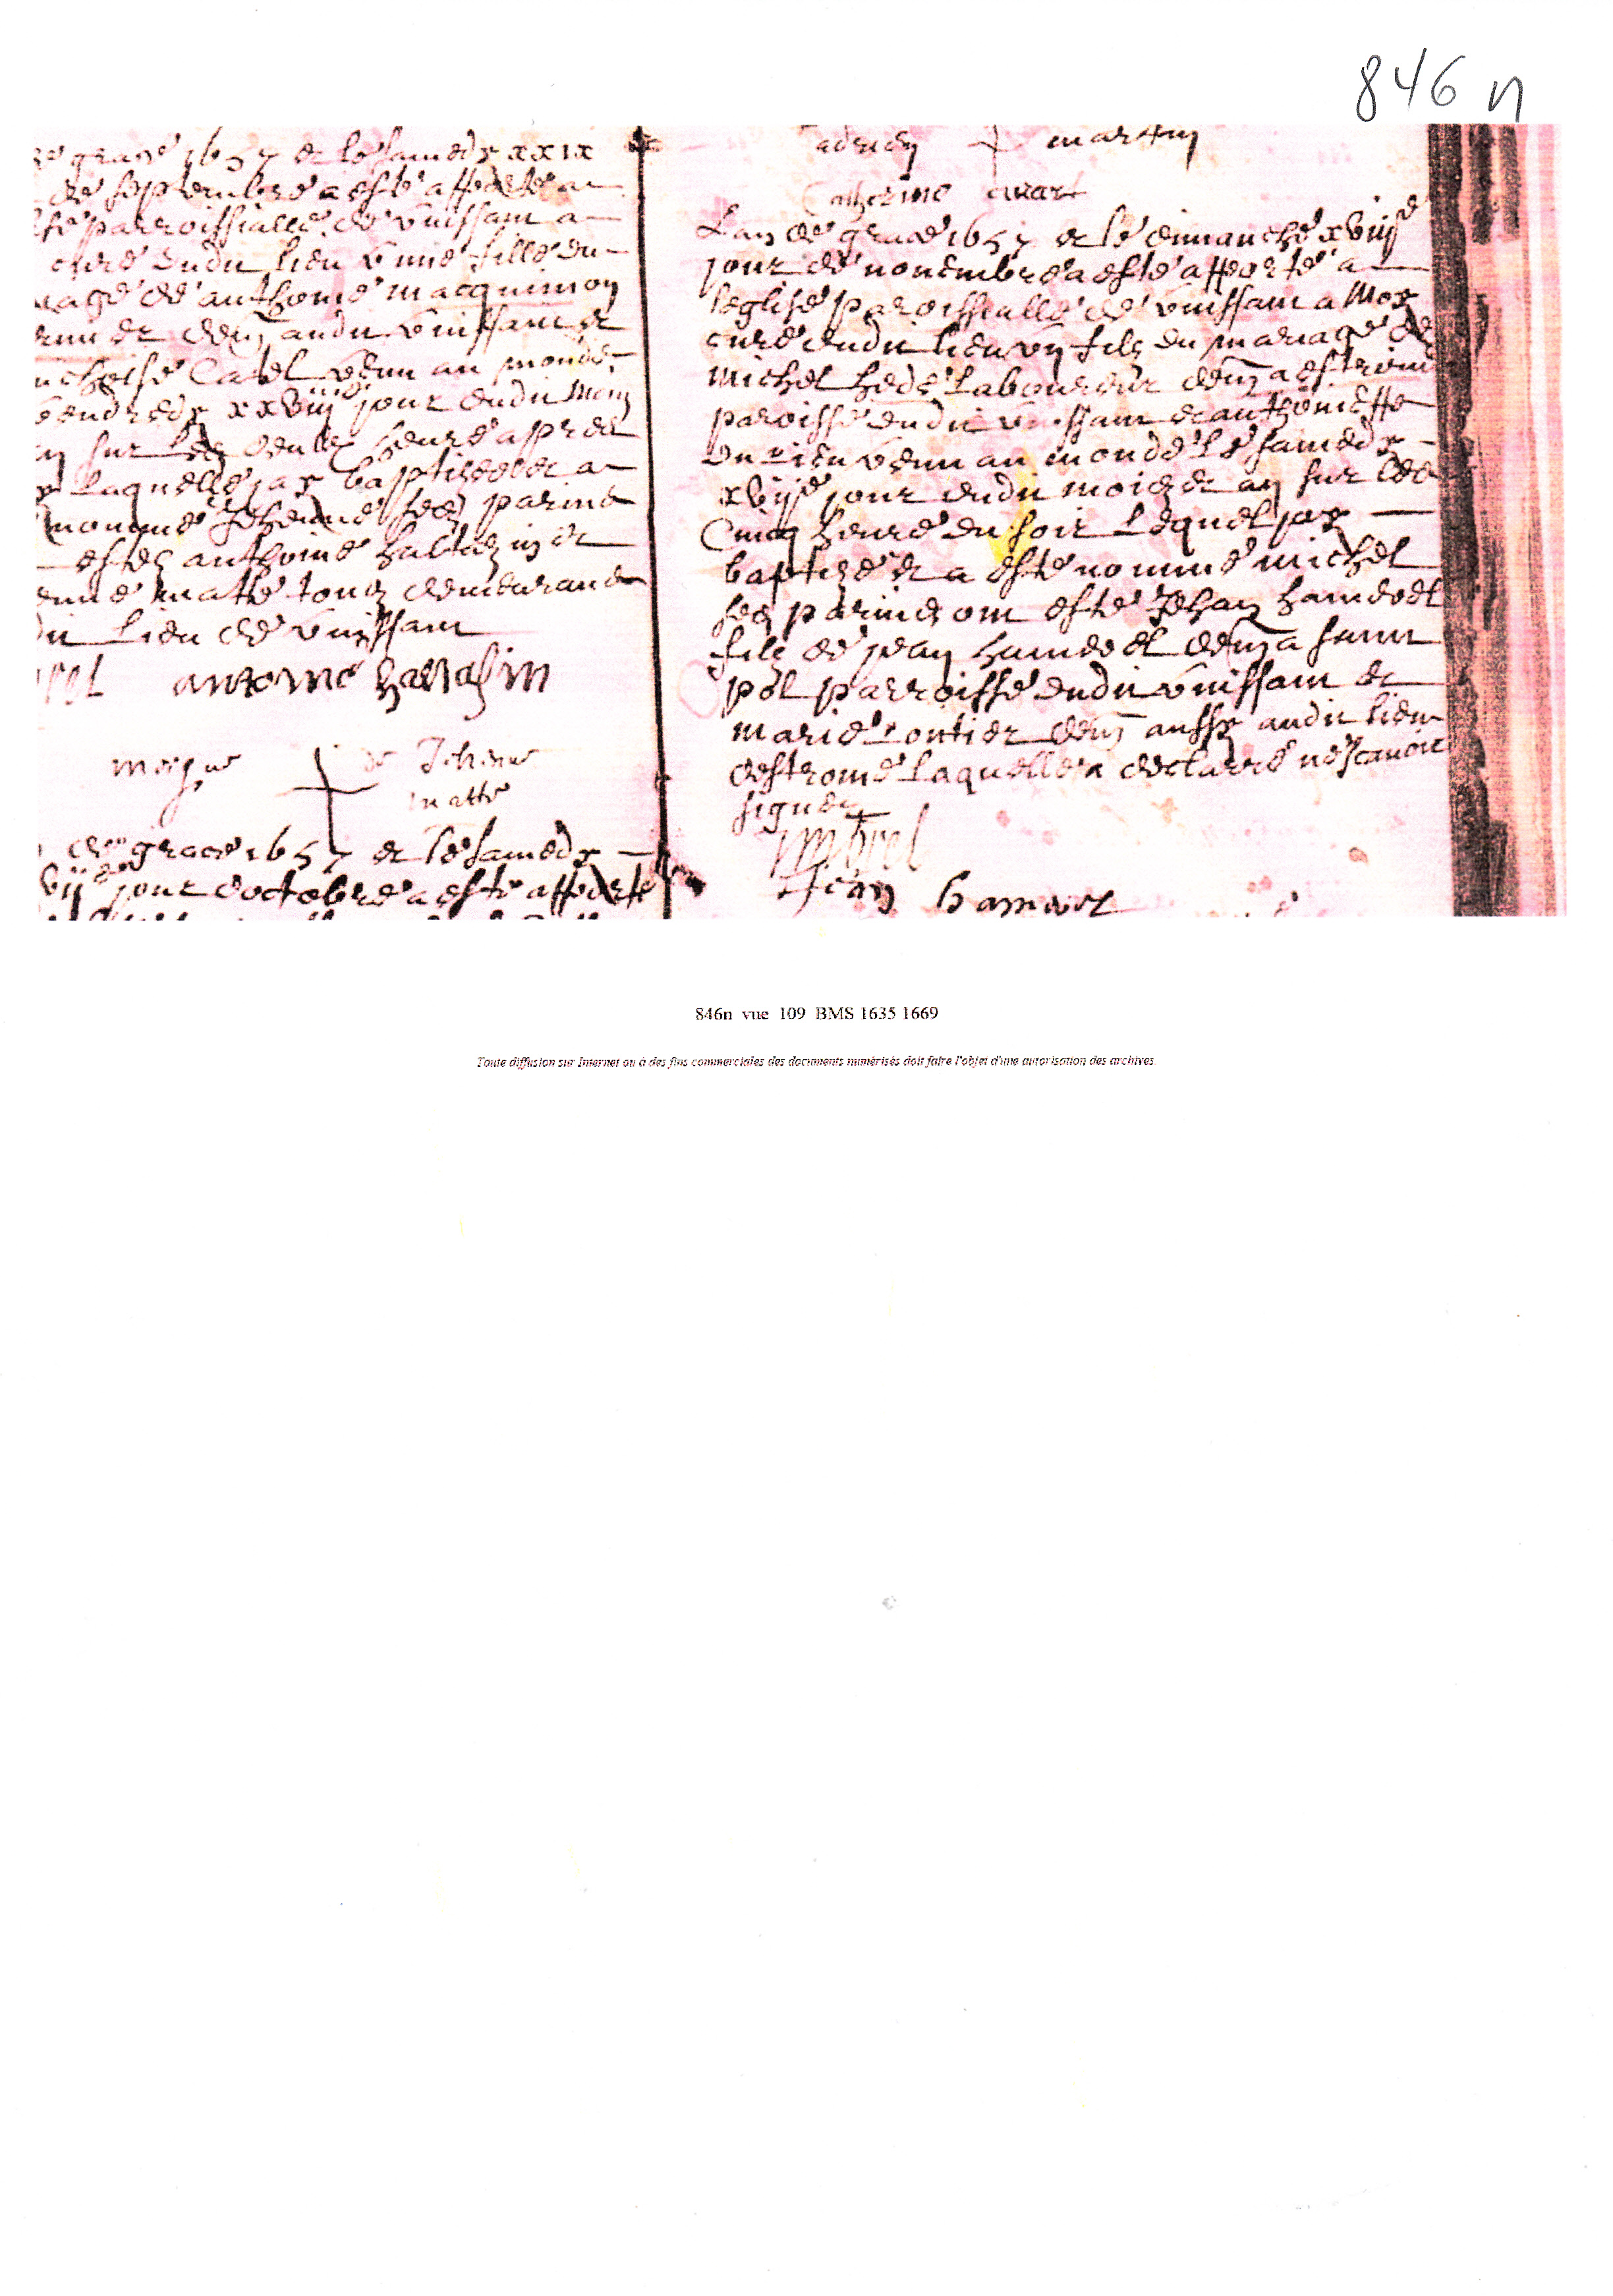 846 n
de grace 1657 et le samedy xxix
de septembre a este apporte a
parroissialle de vuissant a
cure dudit lieu une fille du
de anthoine macquinnon
audit vuissant et
Cazel venu au monde
vendredy xxviij jour dudit mois
sur les heure apres
Laquelle jay baptisee et a
nommé Jehenne ses parins
estes anthoine et
matte tous demeurans
lieu de vuissant
antoine
marque de Jehenne
matte
de grace 1657 et le samedy
vije jour doctobre a este apporte
adrien martin
Catherine evart
Lan de grace 1657 et le dimanche xviije
jour de novembre a este apporte a
leglise paroissialle de vuissant a Moy
cure dudit lieu un fils du mariage de
michel hede Laboureur dem a estrome
paroisse dudit vuissant et anthoinette
venu au monde Le samedy
xvije jour dudit mois et an sur les
Cincq heure du soir Lequel jay
baptise et a este nomme michel
ses parins ont este Jehan hamerel
filz de jean hamerel dem a saint
pol parroisse dudit vuissant et
marie Lontier dem aussy audit lieu
destrome Laquelle a declaré ne scavoir
signer
Jean hamerel
846n vue 109 BMS 1635 1669
Toute diffusion sur Internet ou à des fins commerciales des documents numérisés doit faire l'objet d'une autorisation des archives.